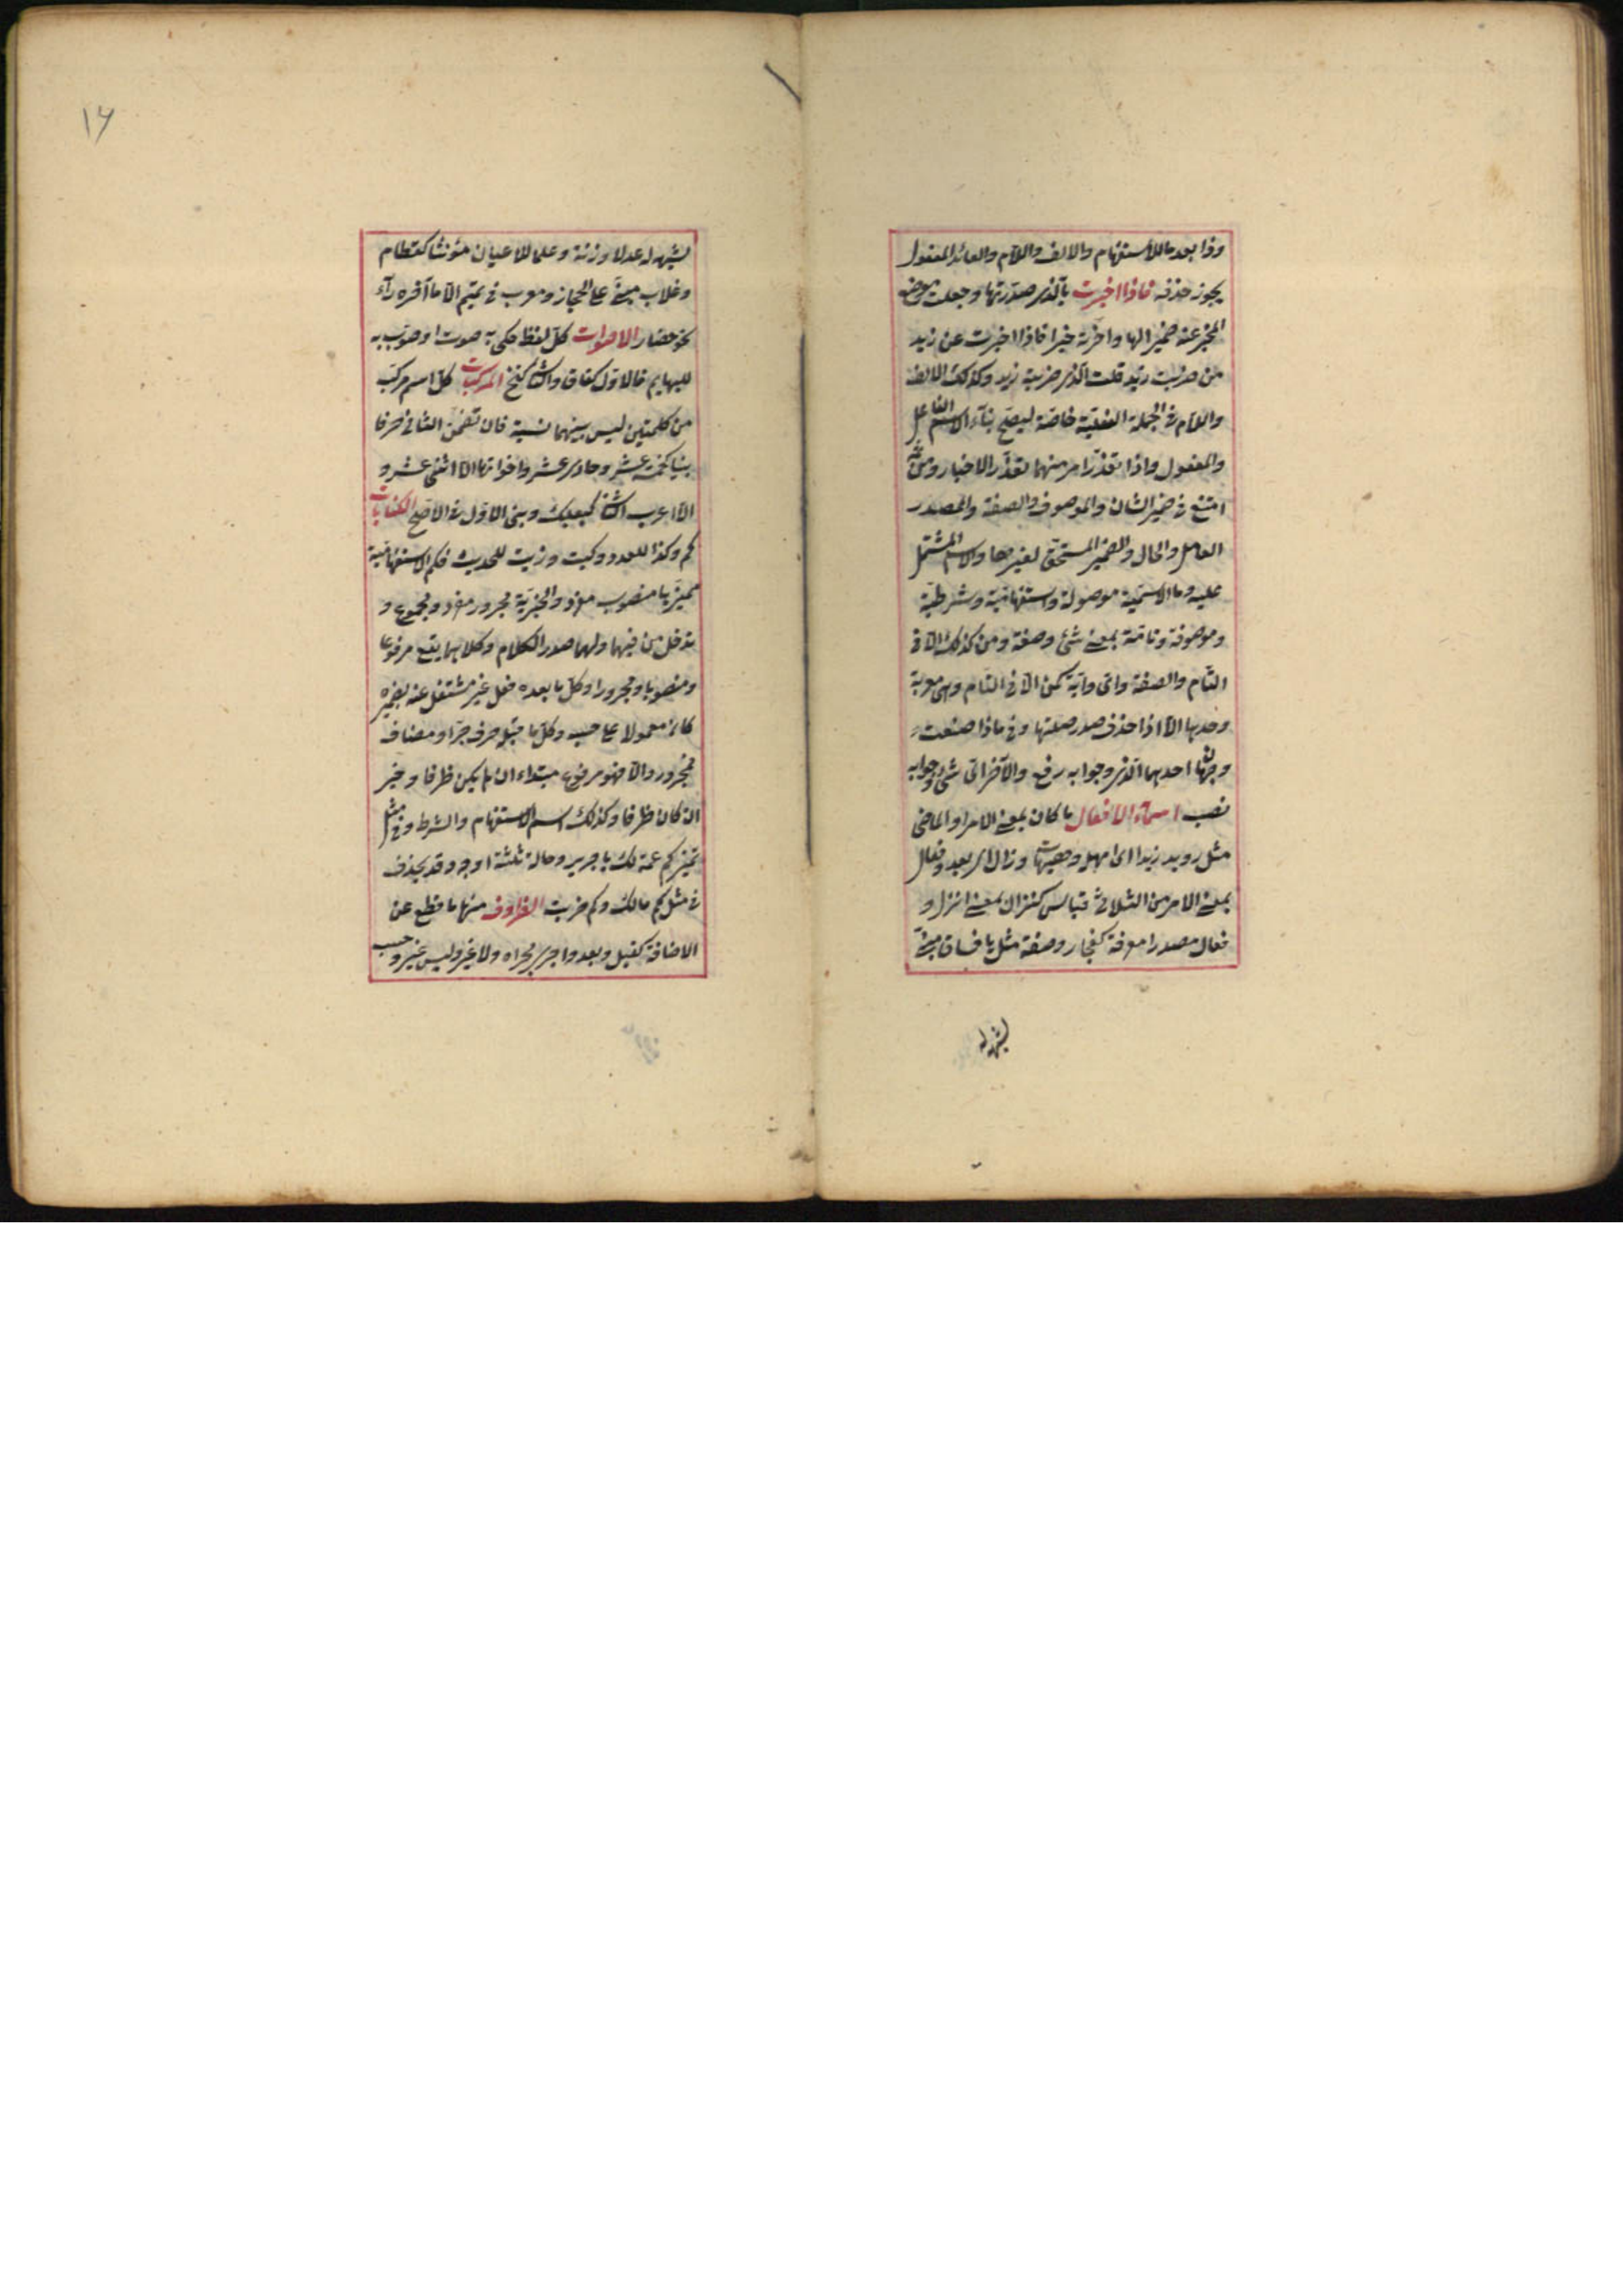 وذا بعد ما للاستفهام والالف واللام والعائد المفعول
يجوز حذفه فاذا اخبرت بالذى صدرتها وجعلت موضع
المخبر عنه ضميرا لها واخرته خبرا فاذا اخبرت عن زيد
من ضربت زيد قلت الذى ضربته زيد وكذلك الالف
واللام فى الجملة الفعلية خاصة ليصح بناء اسم الفاعل
والمفعول واذا تعذر امر منهما تعذر الاخبار ومن ثمه
امتنع فى ضمير الشان والموصوف والصفة والمصدر
العامل والحال والضمير المستحق لغيرها والاسم المشتمل
عليه وما الاسمية موصولة واستفهامية وشرطية
وموصوفة وتامة بمعنى شئ وصفة ومن كذلك الا فى
التام والصفة واى واية كمن الا فى التام وهى معربة
وحدها الا اذا حذف صدر صلتها وفى ماذا صنعت
وجهان احدهما الذى وجوابه رفع والآخر اى شئ وجوابه
نصب اسماء الافعال ما كان بمعنى الامر او الماضى
مثل رويد زيدا اى امهل وهيهات وذاك اى بعد وفعال
بمعنى الامر من الثلاثى قياس كنزال بمعنى انزل و
فعال مصدرا معرفة كفجار وصفة مثل يا فساق مبنى
لشبهه له
١٦
لشبهه له عدلا وزنة وعلما للاعيان مؤنثا كقطام
وغلاب مبنى على الحجاز ومعرب فى تميم الا ما آخره راء
نحو حضار الاصوات كل لفظ حكى به صوت او صوت به
للبهايم فالاول كغاق والثانى كنخ المركبات كل اسم مركب
من كلمتين ليس بينهما نسبة فان تضمن الثانى حرفا
بنيا كخمسة عشر وحادى عشر واخواتها الا اثنى عشر و
الا اعرب الثانى كبعلبك وبنى الاول فى الاصح الكنايات
كم وكذا للعدد وكيت وذيت للحديث فكم الاستفهامية
مميزها منصوب مفرد والخبرية مجرور مفرد ومجموع و
تدخل من فيهما ولهما صدر الكلام وكلاهما يقع مرفوعا
ومنصوبا ومجرورا وكل ما بعده فعل غير مشتغل عنه بضميره
كان معمولا على حسبه وكل ما قبله حرف جر او مضاف
فمجرور والا فهو مرفوع مبتداء ان لم يكن ظرفا وخبر
ان كان ظرفا وكذلك اسم الاستفهام والشرط وفى مثل
تميز كم عمة لك يا جرير وخالة ثلثة اوجه وقد يحذف
فى مثل كم مالك وكم ضربت الظروف منها ما قطع عن
الاضافة كقبل وبعد واجرى مجراه ولا غير وليس غير وحسب